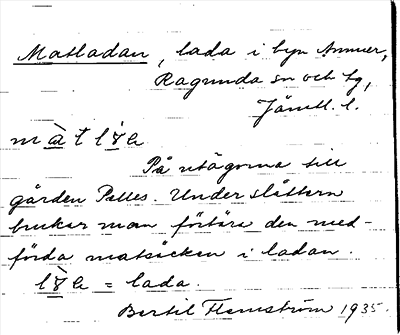 Matladan, lada i byn Ammer,
Ragunda sn och tg,
Jämtl. l.
På utägorna till
gården Palles. Under slåttern
brukar man förtära den med-
förda matsäcken i ladan.
= lada.
Bertil Flemström 1935.